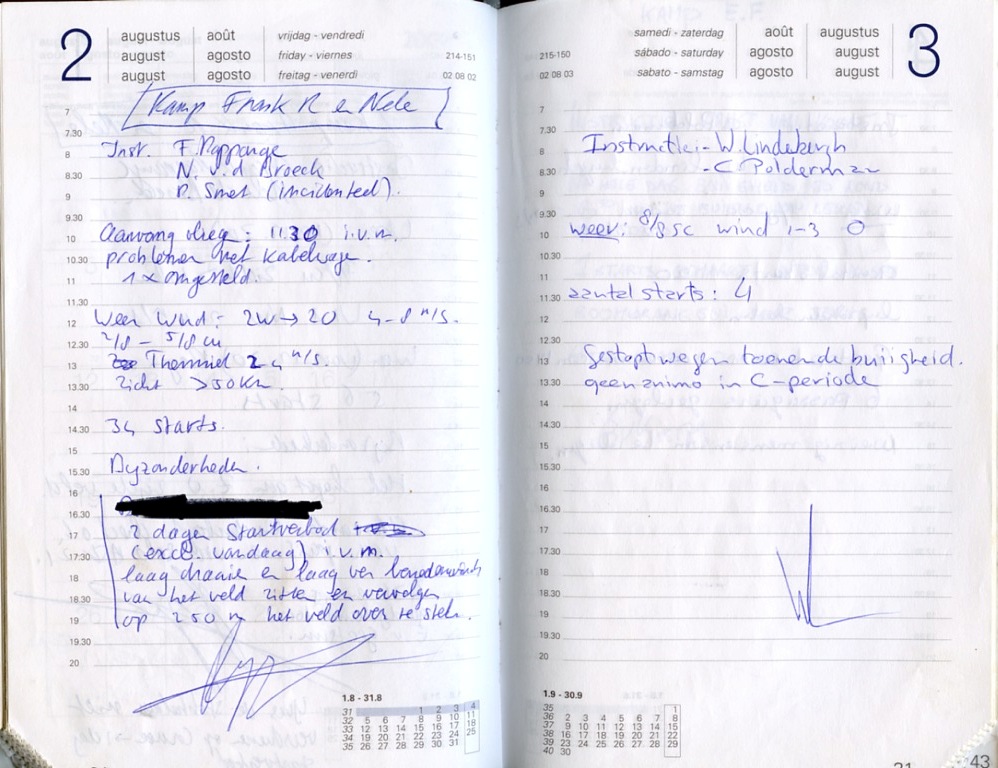 2
augustus août vrijdag - vendredi
august agosto friday - viernes 214-151
august agosto freitag - venerdi 02 08 02
Kamp Frank R en Nele
7
7.30
8 Inst. F. Poppange
8.30 N. v.d Broeck
9 P. Smet (incidenteel).
9.30
10 Aanvang vlieg: 11.30 i.v.m.
10.30 problemen met kabelwage.
11 1x omgesteld.
11.30
12 Weer Wind: ZW → 20 4-8 m/s.
12.30 2/8 - 5/8 cu
13 Thermiek 2 4 m/s.
13.30 Zicht >50Km.
14
14.30 34 starts.
15
15.30 Byzonderheden.
16
16.30
17 2 dagen Startverbod
17.30 (excl. vandaag) i.v.m.
18 laag draaien en laag ver benedenwinds
18.30 van het veld zitten en vervolgens
19 op 250 m het veld over te steken.
19.30
20
1.8 - 31.8
31 1 2 3 4
32 5 6 7 8 9 10 11
33 12 13 14 15 16 17 18
34 19 20 21 22 23 24 25
35 26 27 28 29 30 31
samedi - zaterdag août augustus
215-150 sábado - saturday agosto august
02 08 03 sabato - samstag agosto august
3
7
7.30
8 Instructie: - W. Lindebergh
8.30 - C Polderman
9
9.30
10 weer: 8/8 sc wind 1-3 O
10.30
11
11.30 aantal starts: 4
12
12.30
13 Gestopt wegen toenende buiigheid.
13.30 geen animo in C-periode
14
14.30
15
15.30
16
16.30
17
17.30
18
18.30
19
19.30
20
1.9 - 30.9
35 1
36 2 3 4 5 6 7 8
37 9 10 11 12 13 14 15
38 16 17 18 19 20 21 22
39 23 24 25 26 27 28 29
40 30
43